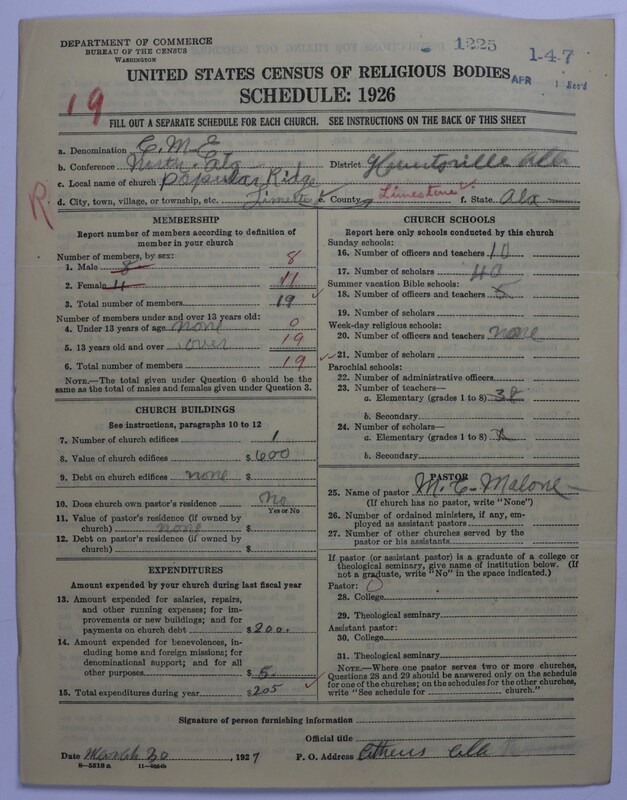 DEPARTMENT OF COMMERCE
BUREAU OF THE CENSUS
WASHINGTON
1225
1-4-7
APR 1 Rec'd
UNITED STATES CENSUS OF RELIGIOUS BODIES
SCHEDULE: 1926
19
FILL OUT A SEPARATE SCHEDULE FOR EACH CHURCH. SEE INSTRUCTIONS ON THE BACK OF THIS SHEET
a. Denomination C. M. E
b. Conference North Ala District Hountsville Ala
c. Local name of church Popular Ridge
R
d. City, town, village, or township, etc. e. County Limestone f. State. Ala
MEMBERSHIP
Report number of members according to definition of member in your church
Number of members, by sex:
1. Male 8 8
2. Female 11 11
3. Total number of members 19
Number of members under and over 13 years old:
4. Under 13 years of age none 0
5. 13 years old and over over 19
6. Total number of members 19
NOTE.—The total given under Question 6 should be
same as the total of males and females given under Question 3.
CHURCH BUILDINGS
See instructions, paragraphs 10 to 12
7. Number of church edifices 1
8. Value of church edifices $ 600
9. Debt on church edifices none $
10. Does church own pastor's residence No
Yes or No
11. Value of pastor's residence (if owned by
church) none $
12. Debt on pastor's residence (if owned by
church) $
EXPENDITURES
Amount expended by your church during last fiscal year
13. Amount expended for salaries, repairs,
and other running expenses; for im-
provements or new buildings; and for
payments on church debt $ 200.
14. Amount expended for benevolences, in-
cluding home and foreign missions; for
denominational support; and for all
other purposes $ 5.
15. Total expenditures during year $ 205
CHURCH SCHOOLS
Report here only schools conducted by this church
Sunday schools:
16. Number of officers and teachers 10
17. Number of scholars 40
Summer vacation Bible schools:
18. Number of officers and teachers 5
19. Number of scholars
Week-day religious schools:
20. Number of officers and teachers none
21. Number of scholars
Parochial schools:
22. Number of administrative officers
23. Number of teachers—
a. Elementary (grades 1 to 8)
b. Secondary
24. Number of scholars—
a. Elementary (grades 1 to 8)
b. Secondary
PASTOR
25. Name of pastor M. C. Malone
(If church has no pastor, write "None")
26. Number of ordained ministers, if any, em-
ployed as assistant pastors
27. Number of other churches served by the
pastor or his assistants
If pastor (or assistant pastor) is a graduate of a college or
theological seminary, give name of institution below. (If
not a graduate, write "No" in the space indicated.)
Pastor:
28. College
29. Theological seminary
Assistant pastor:
30. College
31. Theological seminary
NOTE.—Where one pastor serves two or more churches,
Questions 28 and 29 should be answered only on the schedule
for one of the churches; on the schedules for the other churches,
write "See schedule for church."
Signature of person furnishing information
Official title
Date March 30, 1927 P. O. Address Athens Ala
8—5518 a